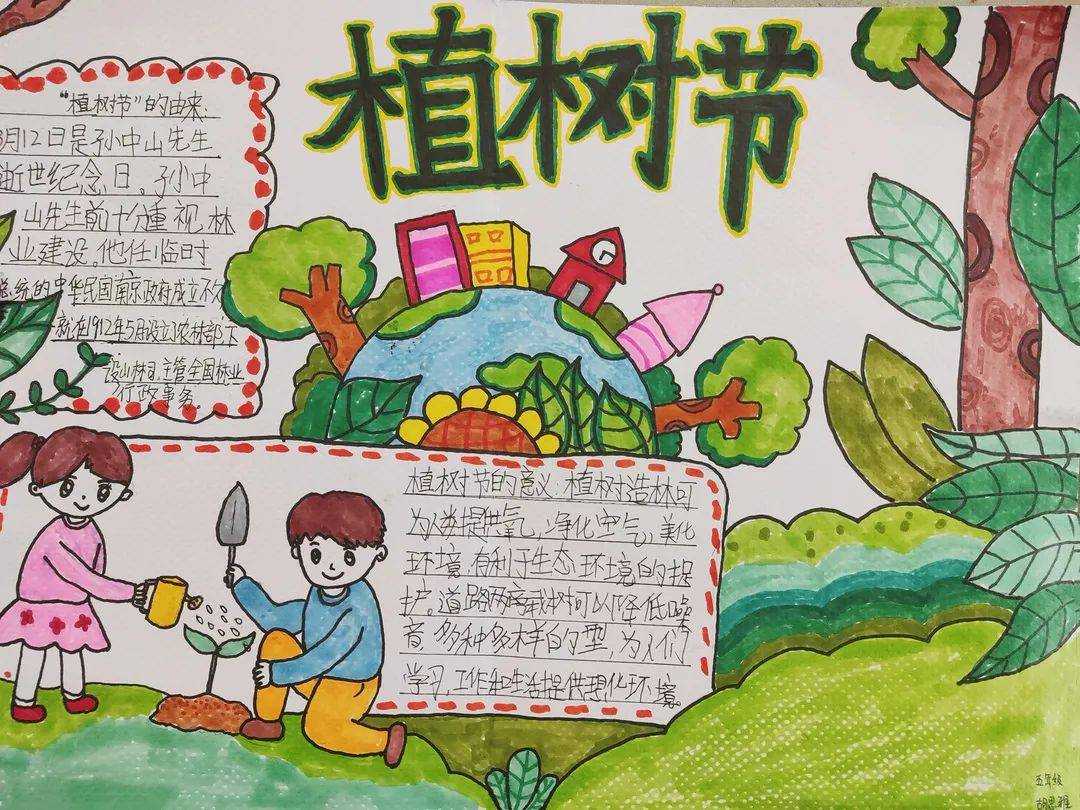 植树节
“植树节”的由来:
3月12日是孙中山先生
逝世纪念日。孙中
山先生前十分重视林
业建设。他任临时
总统的中华民国南京政府成立不久
就在1912年5月设立农林部,下
设山林司,主管全国林业
行政事务。
植树节的意义:植树造林可
为人类提供氧气,净化空气,美化
环境,有利于生态环境的保
护。道路两旁栽树可以降低噪
音,多种多样的型,为人们
学习,工作和生活提供现化环境。
五年级
胡思雅